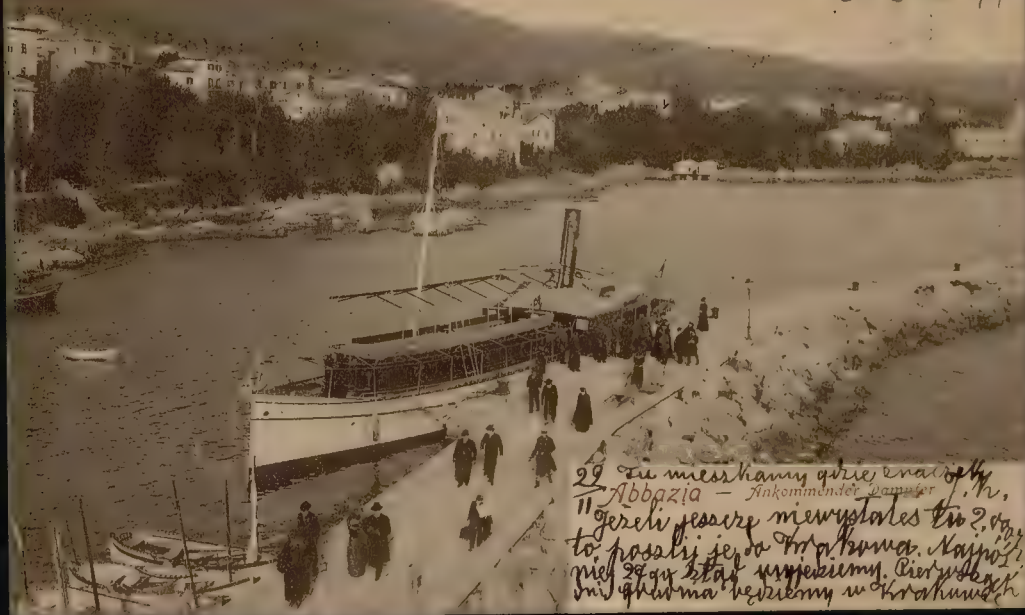 29 Tu mieszkamy gdzie
II Abbazia — Ankommender Dampfer
Jeżeli jeszcze niewysłałeś tu
to poszlij je do Krakowa. Najpóź
niej 29go ztąd wyjedziemy. Pierwszego
grudnia będziemy w Krakowie